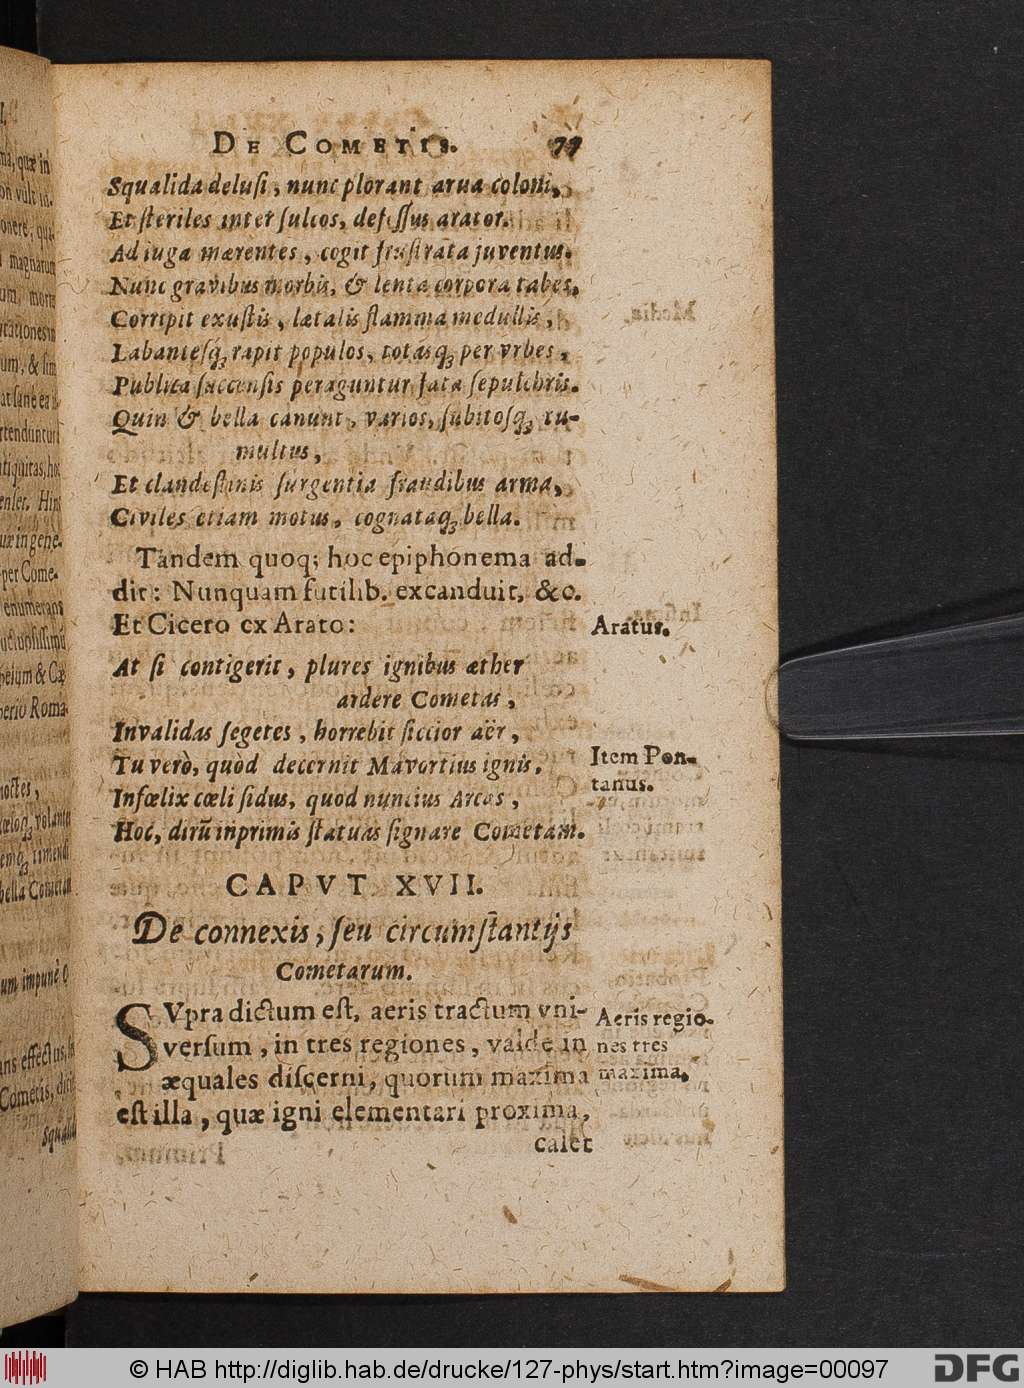 DE COMETIS. 77
Squalida delusi, nunc plorant arua coloni,
Et steriles inter sulcos, defessus arator.
Ad iuga mærentes, cogit frustrata juventus.
Nunc gravibus morbis, & lenta corpora tabes,
Corripit exustis, lætalis flamma medullis,
Labantesq́ꝫ rapit populos, totasq́ꝫ per vrbes,
Publica succensis peraguntur fata sepulchris.
Quin & bella canunt, varios, subitosq́ꝫ tu-
multus,
Et clandestinis surgentia fraudibus arma,
Civiles etiam motus, cognataq́ꝫ bella.
Tandem quoq; hoc epiphonema ad-
dit: Nunquam futilib. excanduit, &c.
Et Cicero ex Arato:
Aratus.
At si contigerit, plures ignibus æther
ardere Cometas,
Invalidas segetes, horrebit siccior aër,
Tu verò, quòd decernit Mavortius ignis,
Item Pon-
tanus.
Infœlix cœli sidus, quod nuncius Arcas,
Hoc, dirũ inprimis statuas signare Cometam.
CAPVT XVII.
De connexis, seu circumstantijs
Cometarum.
SVpra dictum est, aeris tractum vni-
versum, in tres regiones, valde in
æquales discerni, quorum maxima
est illa, quæ igni elementari proxima,
Aeris regio-
nes tres
maxima.
calet
© HAB http://diglib.hab.de/drucke/127-phys/start.htm?image=00097
DFG